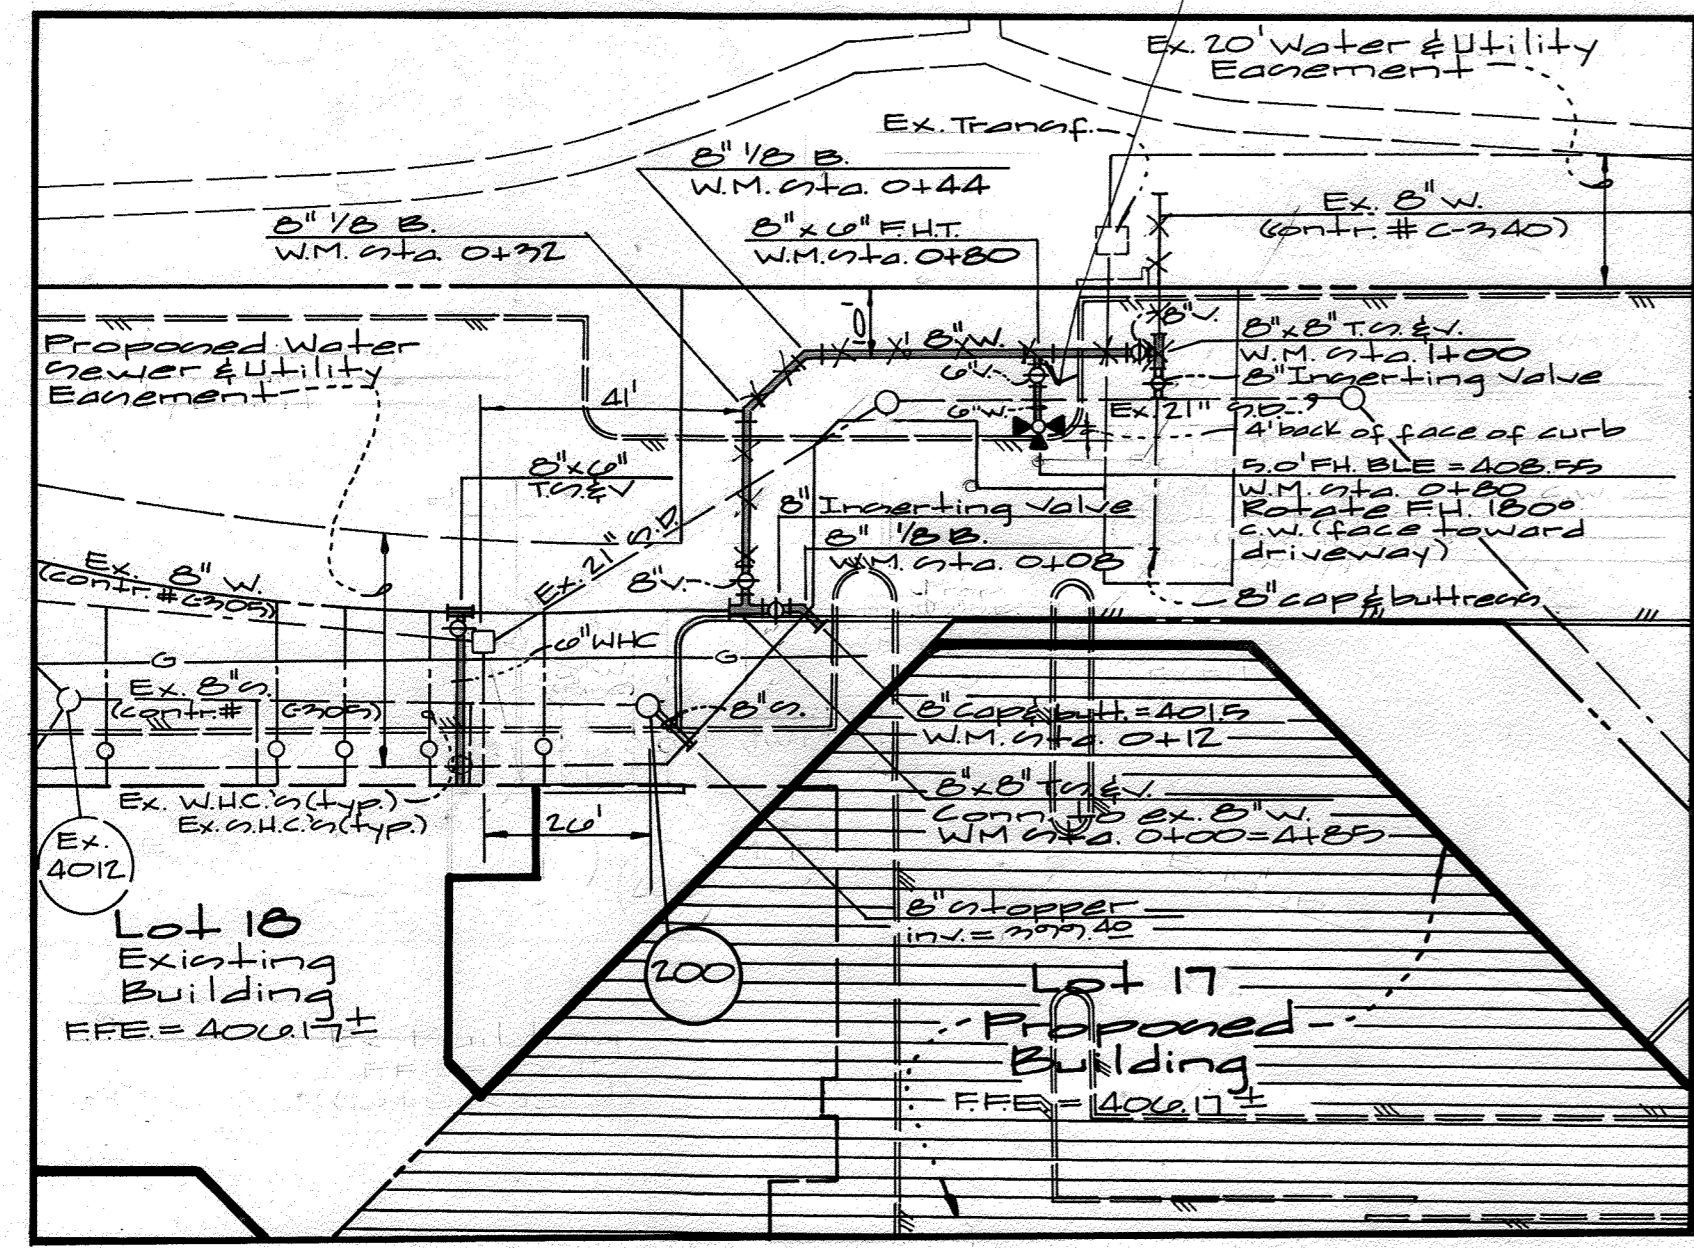 Ex. 20' Water & Utility
Easement
Ex. Transf.
8" 1/8 B.
W.M. Sta. 0+44
Ex. 8" W.
(contr. # C-340)
8" 1/8 B.
W.M. Sta. 0+32
8" x 6" F.H.T.
W.M. Sta. 0+80
8" W.
8" V.
8" x 8" T.S. & V.
W.M. Sta. 1+00
8" Inserting Valve
Proposed Water
Sewer & Utility
Easement
6" V.
6" W.
41'
Ex. 21" S.D.
4' back of face of curb
5.0' F.H. BLE = 408.55
W.M. Sta. 0+80
Rotate F.H. 180°
c.w. (face toward
driveway)
8" x 6"
T.S. & V
8" Inserting Valve
8" 1/8 B.
W.M. Sta. 0+08
Ex. 21" S.D.
8" V.
Ex. 8" W.
(contr. # C-305)
8" cap & buttress
6" WHC
G
G
Ex. 8" S.
(contr. # C-305)
8" S.
8" Cap & butt. = 401.5
W.M. Sta. 0+12
8" x 8" T.S. & V.
Conn. to ex. 8" W.
WM Sta. 0+00 = 4+85
Ex. W.H.C.'s (typ.)
Ex. S.H.C.'s (typ.)
26'
Ex.
4012
8" Stopper
inv. = 399.40
Lot 18
Existing
Building
F.F.E. = 406.17±
200
Lot 17
Proposed
Building
F.F.E. = 406.17±